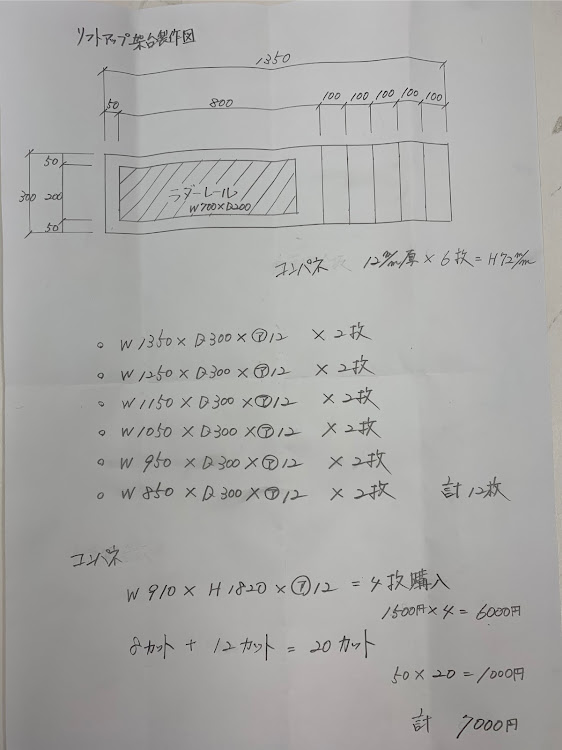 リフトアップ架台製作図
1350
50 800 100 100 100 100 100
50
300 200
50
ラダーレール
W700×D200
コンパネ 12m/m厚×6枚=H72m/m
○ W1350×D300×㋐12 ×2枚
○ W1250×D300×㋐12 ×2枚
○ W1150×D300×㋐12 ×2枚
○ W1050×D300×㋐12 ×2枚
○ W 950×D300×㋐12 ×2枚
○ W 850×D300×㋐12 ×2枚 計12枚
コンパネ
W 910×H1820×㋐12 = 4枚購入
1500円×4=6000円
8カット + 12カット = 20カット
50×20=1000円
計 7000円